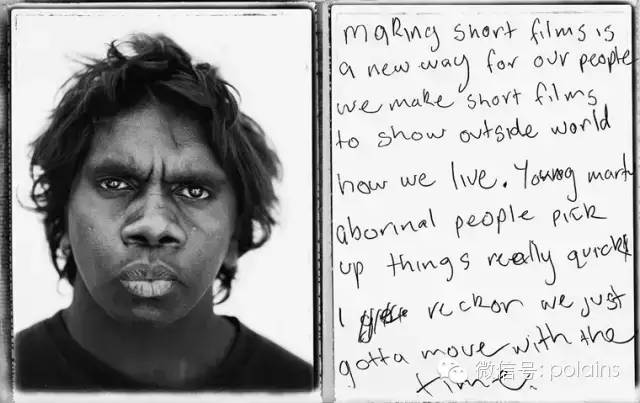 making short films is
a new way for our people
we make short films
to show outside world
how we live. Young martu
aborinal people pick
up things really quick
I reckon we just
gotta move with the
time.
微信号: polains